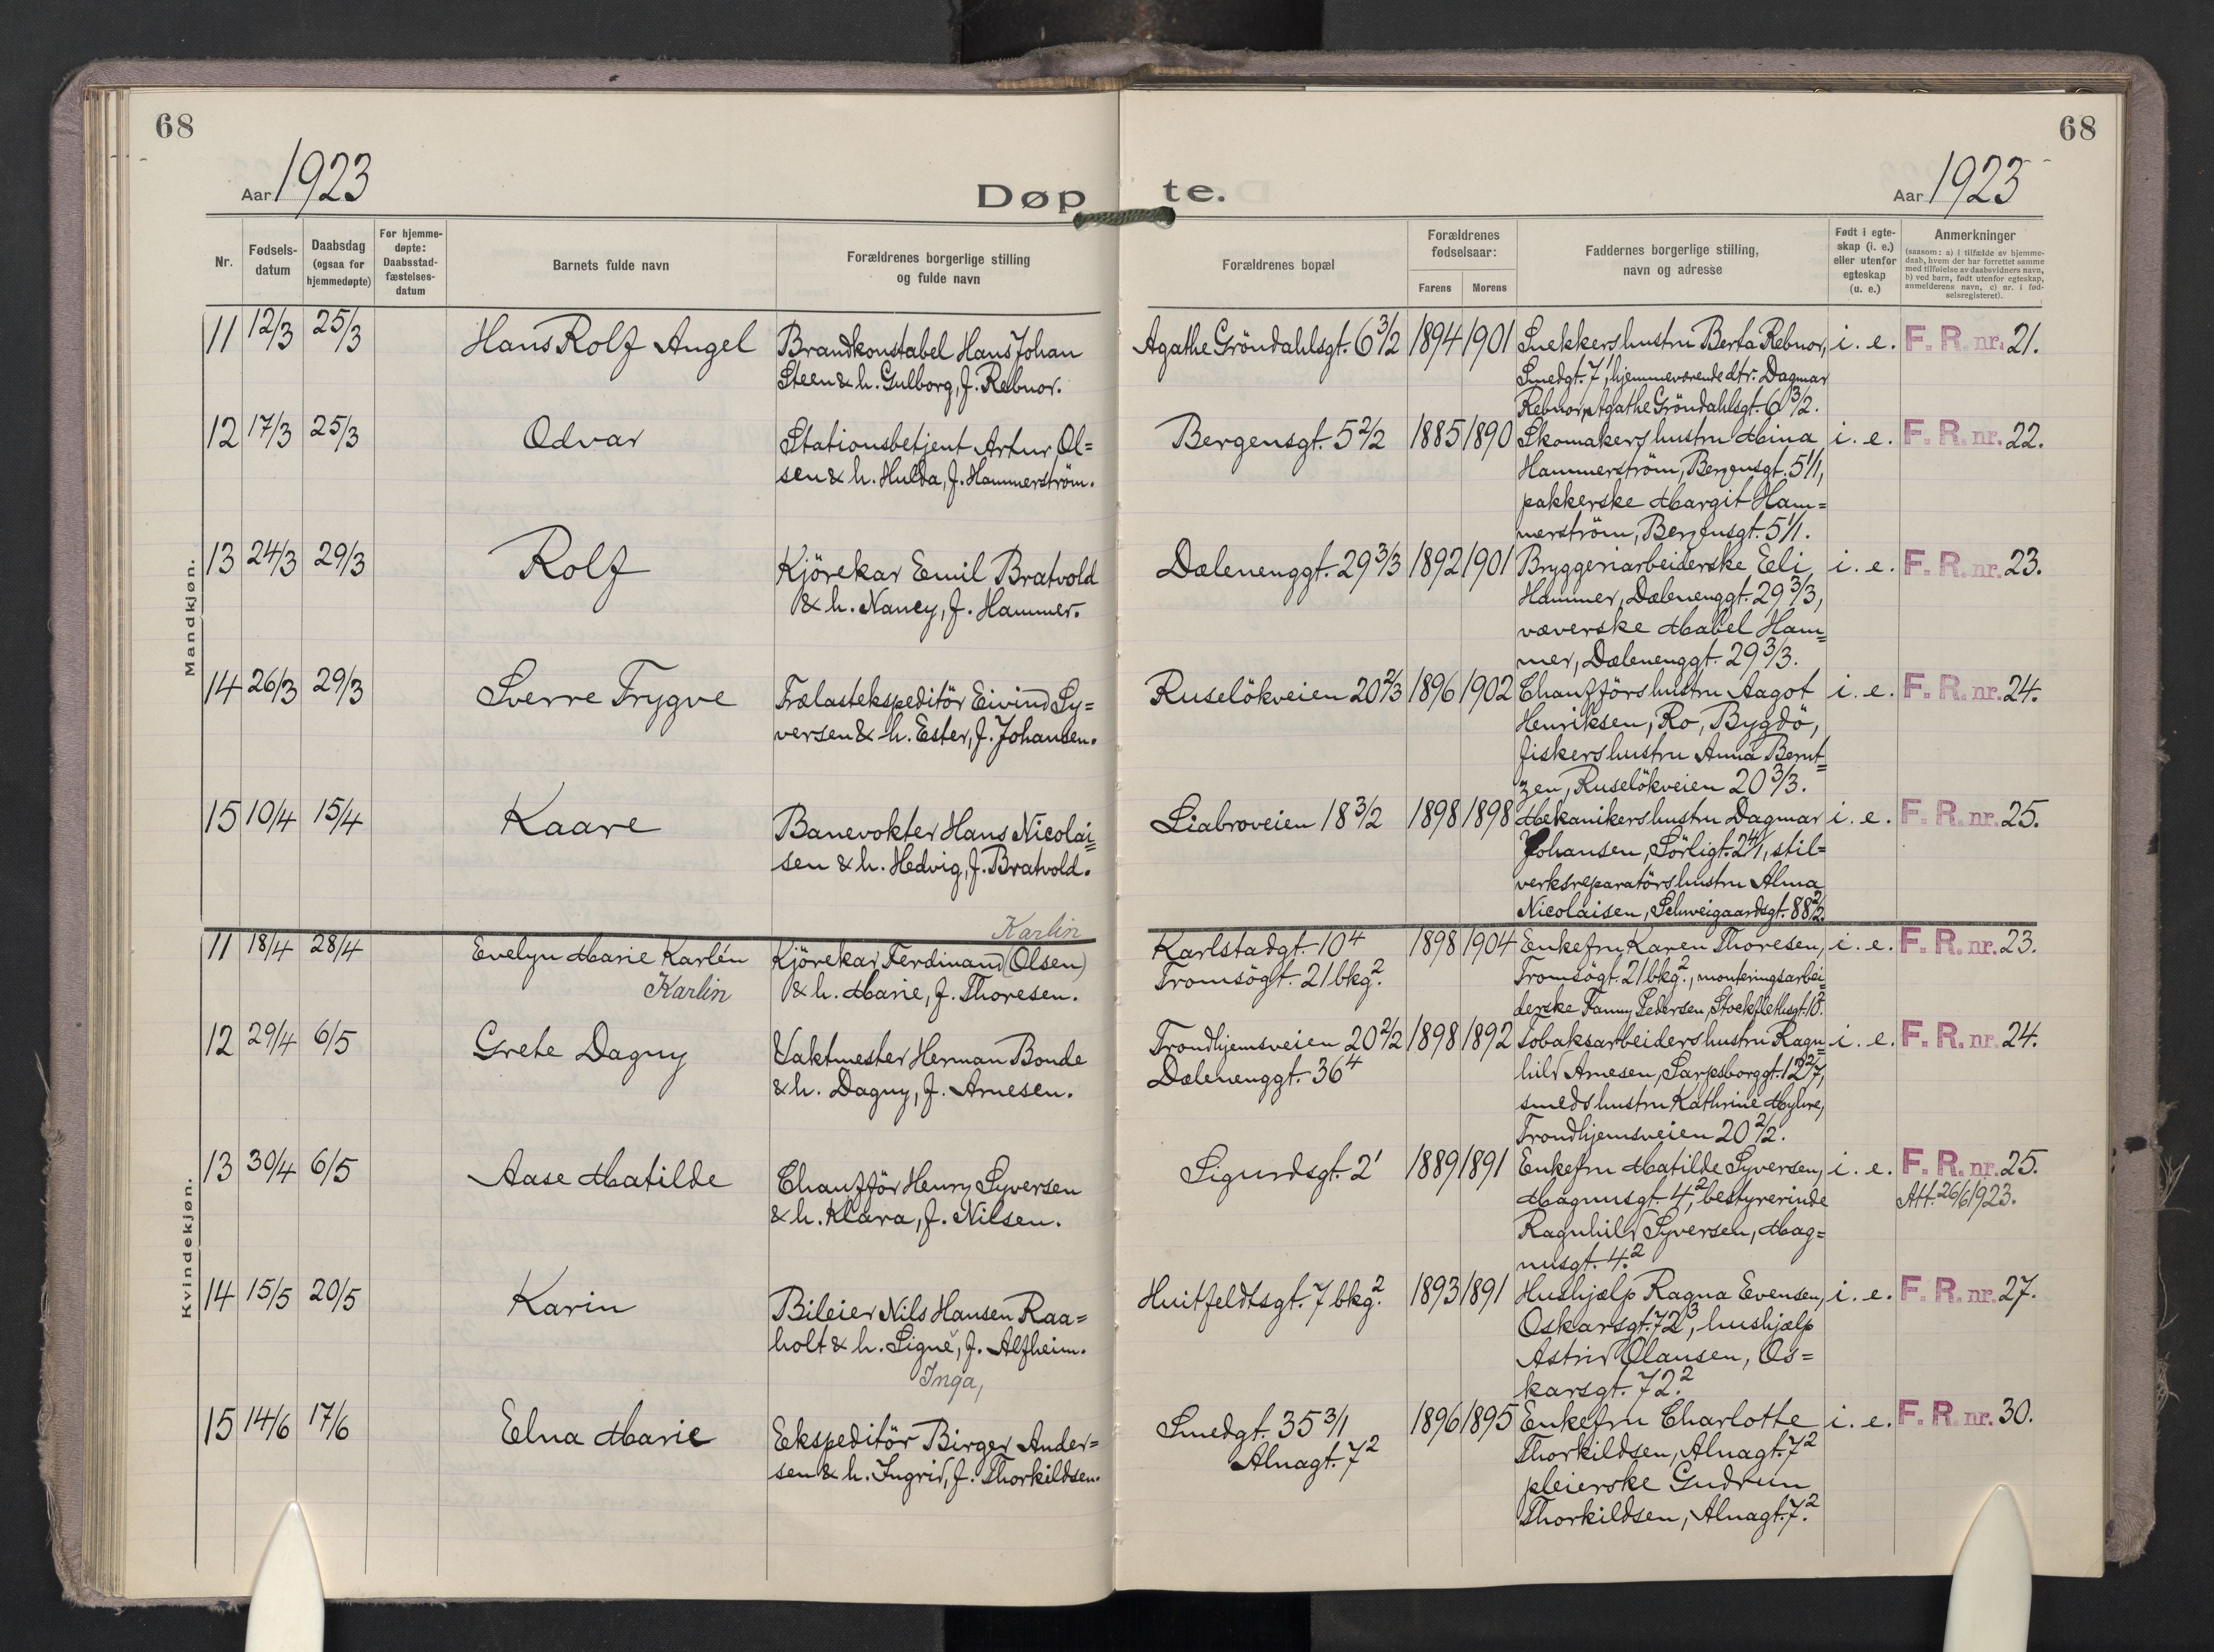 68
68
Aar 1923
Døp te.
Aar 1923
Nr.
Fødsels-
datum
Daabsdag
(ogsaa for
hjemmedøpte)
For hjemme-
døpte:
Daabsstad-
fæstelses-
datum
Barnets fulde navn
Forældrenes borgerlige stilling
og fulde navn
Forældrenes bopæl
Forældrenes
fødselsaar:
Farens Morens
Faddernes borgerlige stilling,
navn og adresse
Født i egte-
skap (i. e.)
eller utenfor
egteskap
(u. e.)
Anmerkninger
(saasom: a) i tilfælde av hjemme-
daab, hvem der har forrettet samme
med tilføielse av daabsvidners navn,
b) ved barn, født utenfor egteskap,
anmelderens navn, c) nr. i fød-
selsregisteret).
Mandkjøn.
11 12/3 25/3 Hans Rolf Angel
Brandkonstabel Hans Johan
Steen & h. Gulborg, f. Rebnor.
Agathe Gröndahlsgt. 6 3/2 1894 1901
Snekkers hustru Berta Rebnor,
Smedgt. 7', hjemmeværende dtr. Dagmar
Rebnor, Agathe Gröndahlsgt. 6 3/2.
i. e. F. R. nr. 21.
12 17/3 25/3 Odvar
Stationsbetjent Artur Ol=
sen & h. Hulda, f. Hammerström.
Bergensgt. 5 2/2 1885 1890
Skomakers hustru Mina
Hammerström, Bergensgt. 5 1/1,
pakkerske Margit Ham=
merström, Bergensgt. 5 1/1.
i. e. F. R. nr. 22.
13 24/3 29/3 Rolf
Kjörekar Emil Bratvold
& h. Nancy, f. Hammer.
Dælenenggt. 29 3/3 1892 1901
Bryggeriarbeiderske Eli
Hammer, Dælenenggt. 29 3/3,
væverske Mabel Ham=
mer, Dælenenggt. 29 3/3.
i. e. F. R. nr. 23.
14 26/3 29/3 Sverre Trygve
Trælastekspeditör Eivind Sy=
versen & h. Ester, f. Johansen.
Ruselökveien 20 2/3 1896 1902
Chaufförs hustru Aagot
Henriksen, Ro, Bygdö,
fiskers hustru Anna Bernt=
zen, Ruselökveien 20 3/3.
i. e. F. R. nr. 24.
15 10/4 15/4 Kaare
Banevokter Hans Nicolai=
sen & h. Hedvig, f. Bratvold.
Liabroveien 18 3/2 1898 1898
Mekanikers hustru Dagmar
Johansen, Sörligt. 2 4/1, stil=
verksreparatörs hustru Alma
Nicolaisen, Schweigaardsgt. 88 2/2.
i. e. F. R. nr. 25.
Kvindekjøn.
11 18/4 28/4 Evelyn Marie Karlén
Karlin
Karlin
Kjörekar Ferdinand (Olsen)
& h. Marie, f. Thoresen.
Karlstadgt. 10 4
Tromsögt. 21 bkg. 2
1898 1904
Enkefru Karen Thoresen,
Tromsögt. 21 bkg. 2, monteringsarbei=
derske Fanny Pedersen, Stockflethsgt. 10 2.
i. e. F. R. nr. 23.
12 29/4 6/5 Grete Dagny
Vaktmester Herman Bonde
& h. Dagny, f. Arnesen.
Trondhjemsveien 20 2/2
Dælenenggt. 36 4
1898 1892
Tobaksarbeiders hustru Ragn=
hild Arnesen, Sarpsborggt. 12 2/7,
smeds hustru Kathrine Myhre,
Trondhjemsveien 20 2/2.
i. e. F. R. nr. 24.
13 30/4 6/5 Aase Matilde
Chaufför Henry Syversen
& h. Klara, f. Nilsen.
Sigurdsgt. 2' 1889 1891
Enkefru Matilde Syversen,
Magnusgt. 4 2, bestyrerinde
Ragnhild Syversen, Mag=
nusgt. 4. 2
i. e. F. R. nr. 25.
Att. 26/6 1923.
14 15/5 20/5 Karin
Bileier Nils Hansen Raa=
holt & h. Signe, f. Alfheim.
Inga,
Huitfeldtsgt. 7 bkg. 2 1893 1891
Hushjælp Ragna Evensen,
Oskarsgt. 72 3, hushjælp
Astrid Olausen, Os=
karsgt. 72. 2
i. e. F. R. nr. 27.
15 14/6 17/6 Elna Marie
Ekspeditör Birger Ander=
sen & h. Ingrid, f. Thorkildsen.
Smedgt. 35 3/1
Alnagt. 7 2
1896 1895
Enkefru Charlotte
Thorkildsen, Alnagt. 7 2
pleierske Gudrun
Thorkildsen, Alnagt. 7. 2
i. e. F. R. nr. 30.